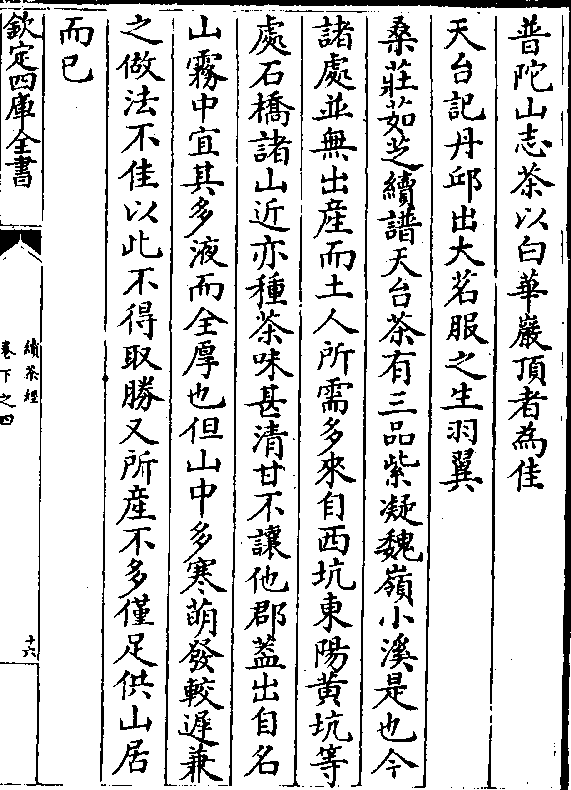 普陀山志茶以白華巖頂者為佳
天台記丹邱出大茗服之生羽翼
桑莊茹芝續譜天台茶有三品紫凝魏嶺小溪是也今
諸處並無出産而土人所需多來自西坑東陽黄坑等
處石橋諸山近亦種茶味甚清甘不讓他郡葢出自名
山霧中宜其多液而全厚也但山中多寒萌發較遲兼
之做法不佳以此不得取勝又所産不多僅足供山居
而已
欽定四庫全書
續茶經
卷下之四
十六